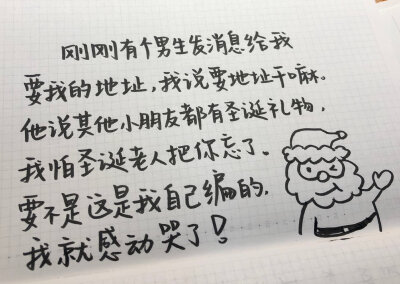 刚刚有个男生发消息给我
要我的地址,我说要地址干嘛。
他说其他小朋友都有圣诞礼物,
我怕圣诞老人把你忘了。
要不是这是我自己编的,
我就感动哭了!